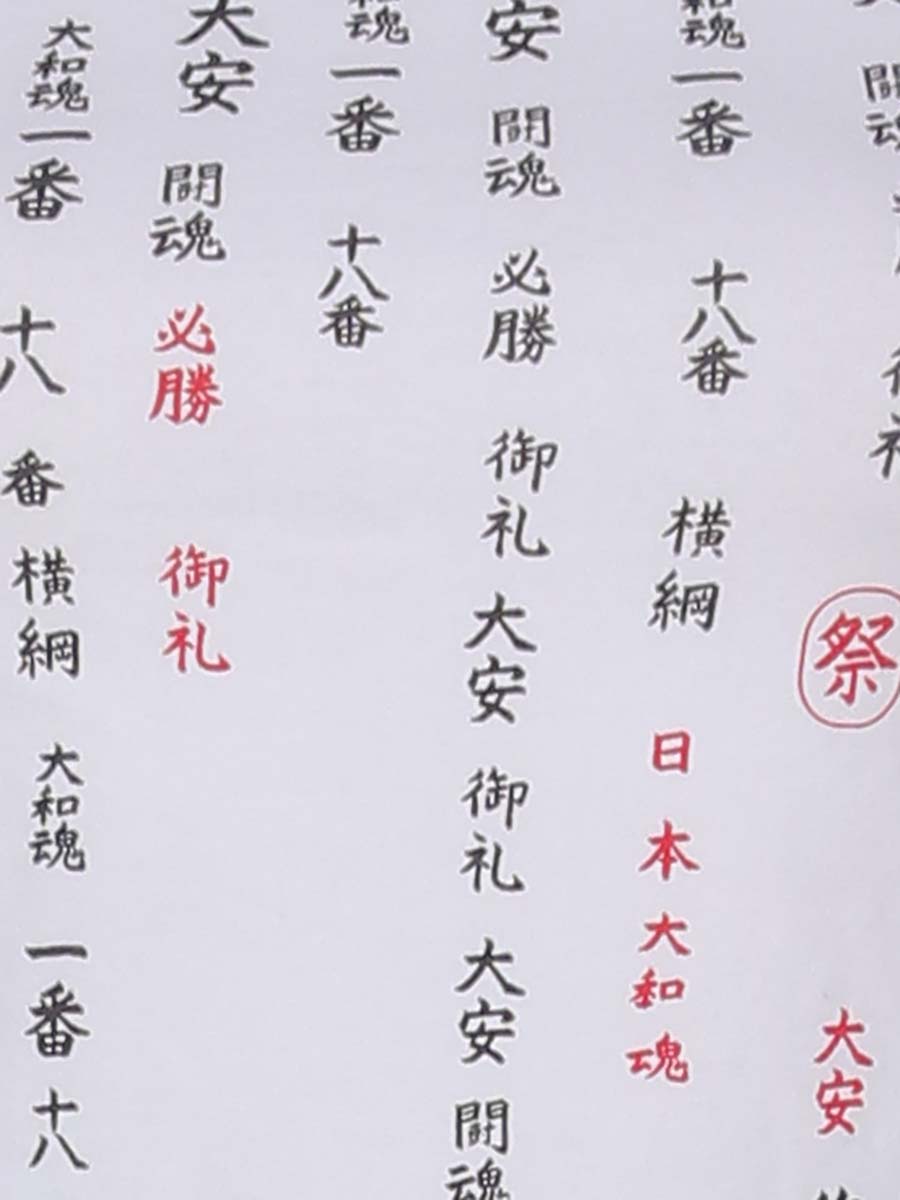 祭
大安
魂一番 十八番 横綱 日本大和魂
安 闘魂 必勝 御礼 大安 御礼 大安 闘魂
魂一番 十八番
大安 闘魂 必勝 御礼
大和魂一番 十八番 横綱 大和魂 一番 十八